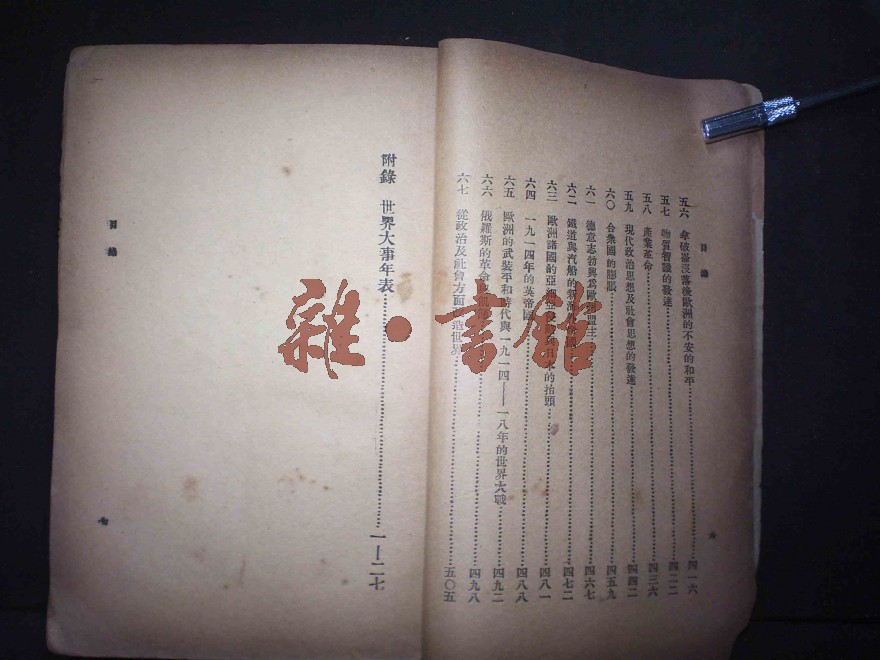 目錄
五六 拿破崙沒落後歐洲的不安的和平 四一六
五七 物質智識的發達 四二二
五八 產業革命 四三六
五九 現代政治思想及社會思想的發達 四四二
六〇 合衆國的膨脹 四五九
六一 德意志勃興爲歐洲盟主 四六七
六二 鐵道與汽船的新 四七二
六三 歐洲諸國的亞 日本的抬頭 四八一
六四 一九一四年的英帝國 四八八
六五 歐洲的武裝平和時代與一九一四——一八年的世界大戰 四九二
六六 俄羅斯的革命 四九八
六七 從政治及社會方面 造世界 五〇五
六
附錄 世界大事年表 一—二七
目錄
七
雜·書館